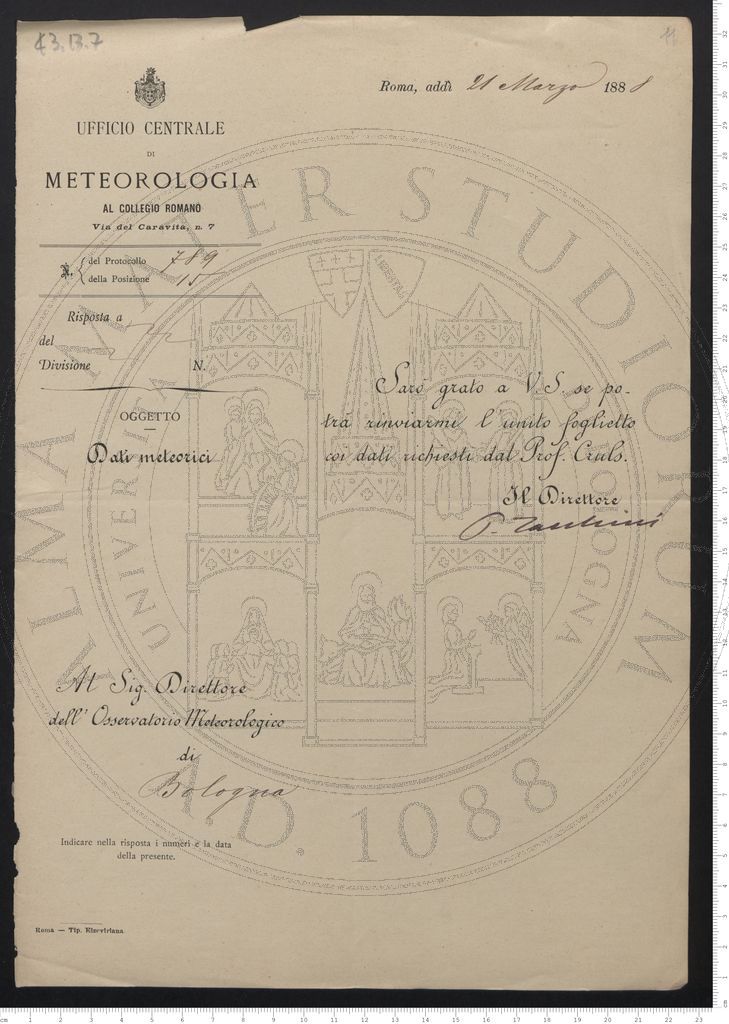 43.B.7
11
Roma, addì 21 Marzo 1888
UFFICIO CENTRALE
DI
METEOROLOGIA
AL COLLEGIO ROMANO
Via del Caravita, n. 7
N. { del Protocollo 789
della Posizione 15
Risposta a
del
Divisione N.
OGGETTO
Dati meteorici
Sarò grato a V. S. se po-
trà rinviarmi l'unito foglietto
coi dati richiesti dal Prof. Cruls.
Il Direttore
P. Tacchini
Al Sig. Direttore
dell'Osservatorio Meteorologico
di
Bologna
Indicare nella risposta i numeri e la data
della presente.
Roma — Tip. Elzeviriana.
ALMA MATER STUDIORUM
A.D. 1088